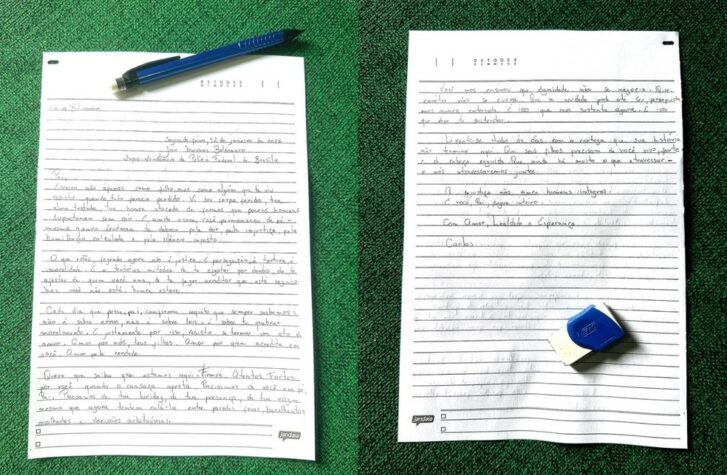 Segunda-feira, 12 de janeiro de 2026
Jair Messias Bolsonaro
Superintendência da Polícia Federal de Brasília
Pai,
Escrevo não apenas como filho, mas como alguém que te viu
resistir quando tudo parecia perdido. Vi seu corpo ferido, sua
alma testada, sua honra atacada de formas que poucos homens
suportariam sem cair. E, ainda assim, você permaneceu de pé –
mesmo quando tentaram te dobrar pela dor, pela injustiça, pela
humilhação calculada e pelo silêncio imposto.
O que estão fazendo agora não é justiça. É perseguição, é tortura e
imoralidade. É a tentativa metódica de te esgotar por dentro, de te
afastar de quem você ama, de te fazer acreditar que está sozinho
mas você não está. Nunca esteve.
Cada dia que passa, pai, confirma aquilo que sempre soubemos:
não é sobre erros, não é sobre leis – é sobre te quebrar
moralmente. E justamente por isso, resistir se tornou um ato de
amor. Amor por nós, teus filhos. Amor por quem acredita em
você. Amor pela verdade.
Quero que saiba que estamos aqui. Firmes. Atentos. Fortes
por você quando o cansaço aperta. Precisamos de você
Precisamos da tua lucidez, da tua presença, da tua voz
mesmo que agora tentem calá-la entre paredes frias, barulhentas
e decisões arbitrárias.
jandaia
Você nos ensinou que dignidade não se negocia. Que
não se curva. Que a verdade pode até ser perseguida
mas nunca enterrada. É isso que nos sustenta agora. É isso
que deve te sustentar.
Levante-se todos os dias com a certeza que sua história
não termina aqui. Que seus filhos precisam de você vivo, forte
e de cabeça erguida. Que ainda há muito o que atravessar –
e nós atravessaremos juntos.
A injustiça não vence homens íntegros.
E você, Pai, segue inteiro.
Com Amor, Lealdade e Esperança
Carlos
jandaia